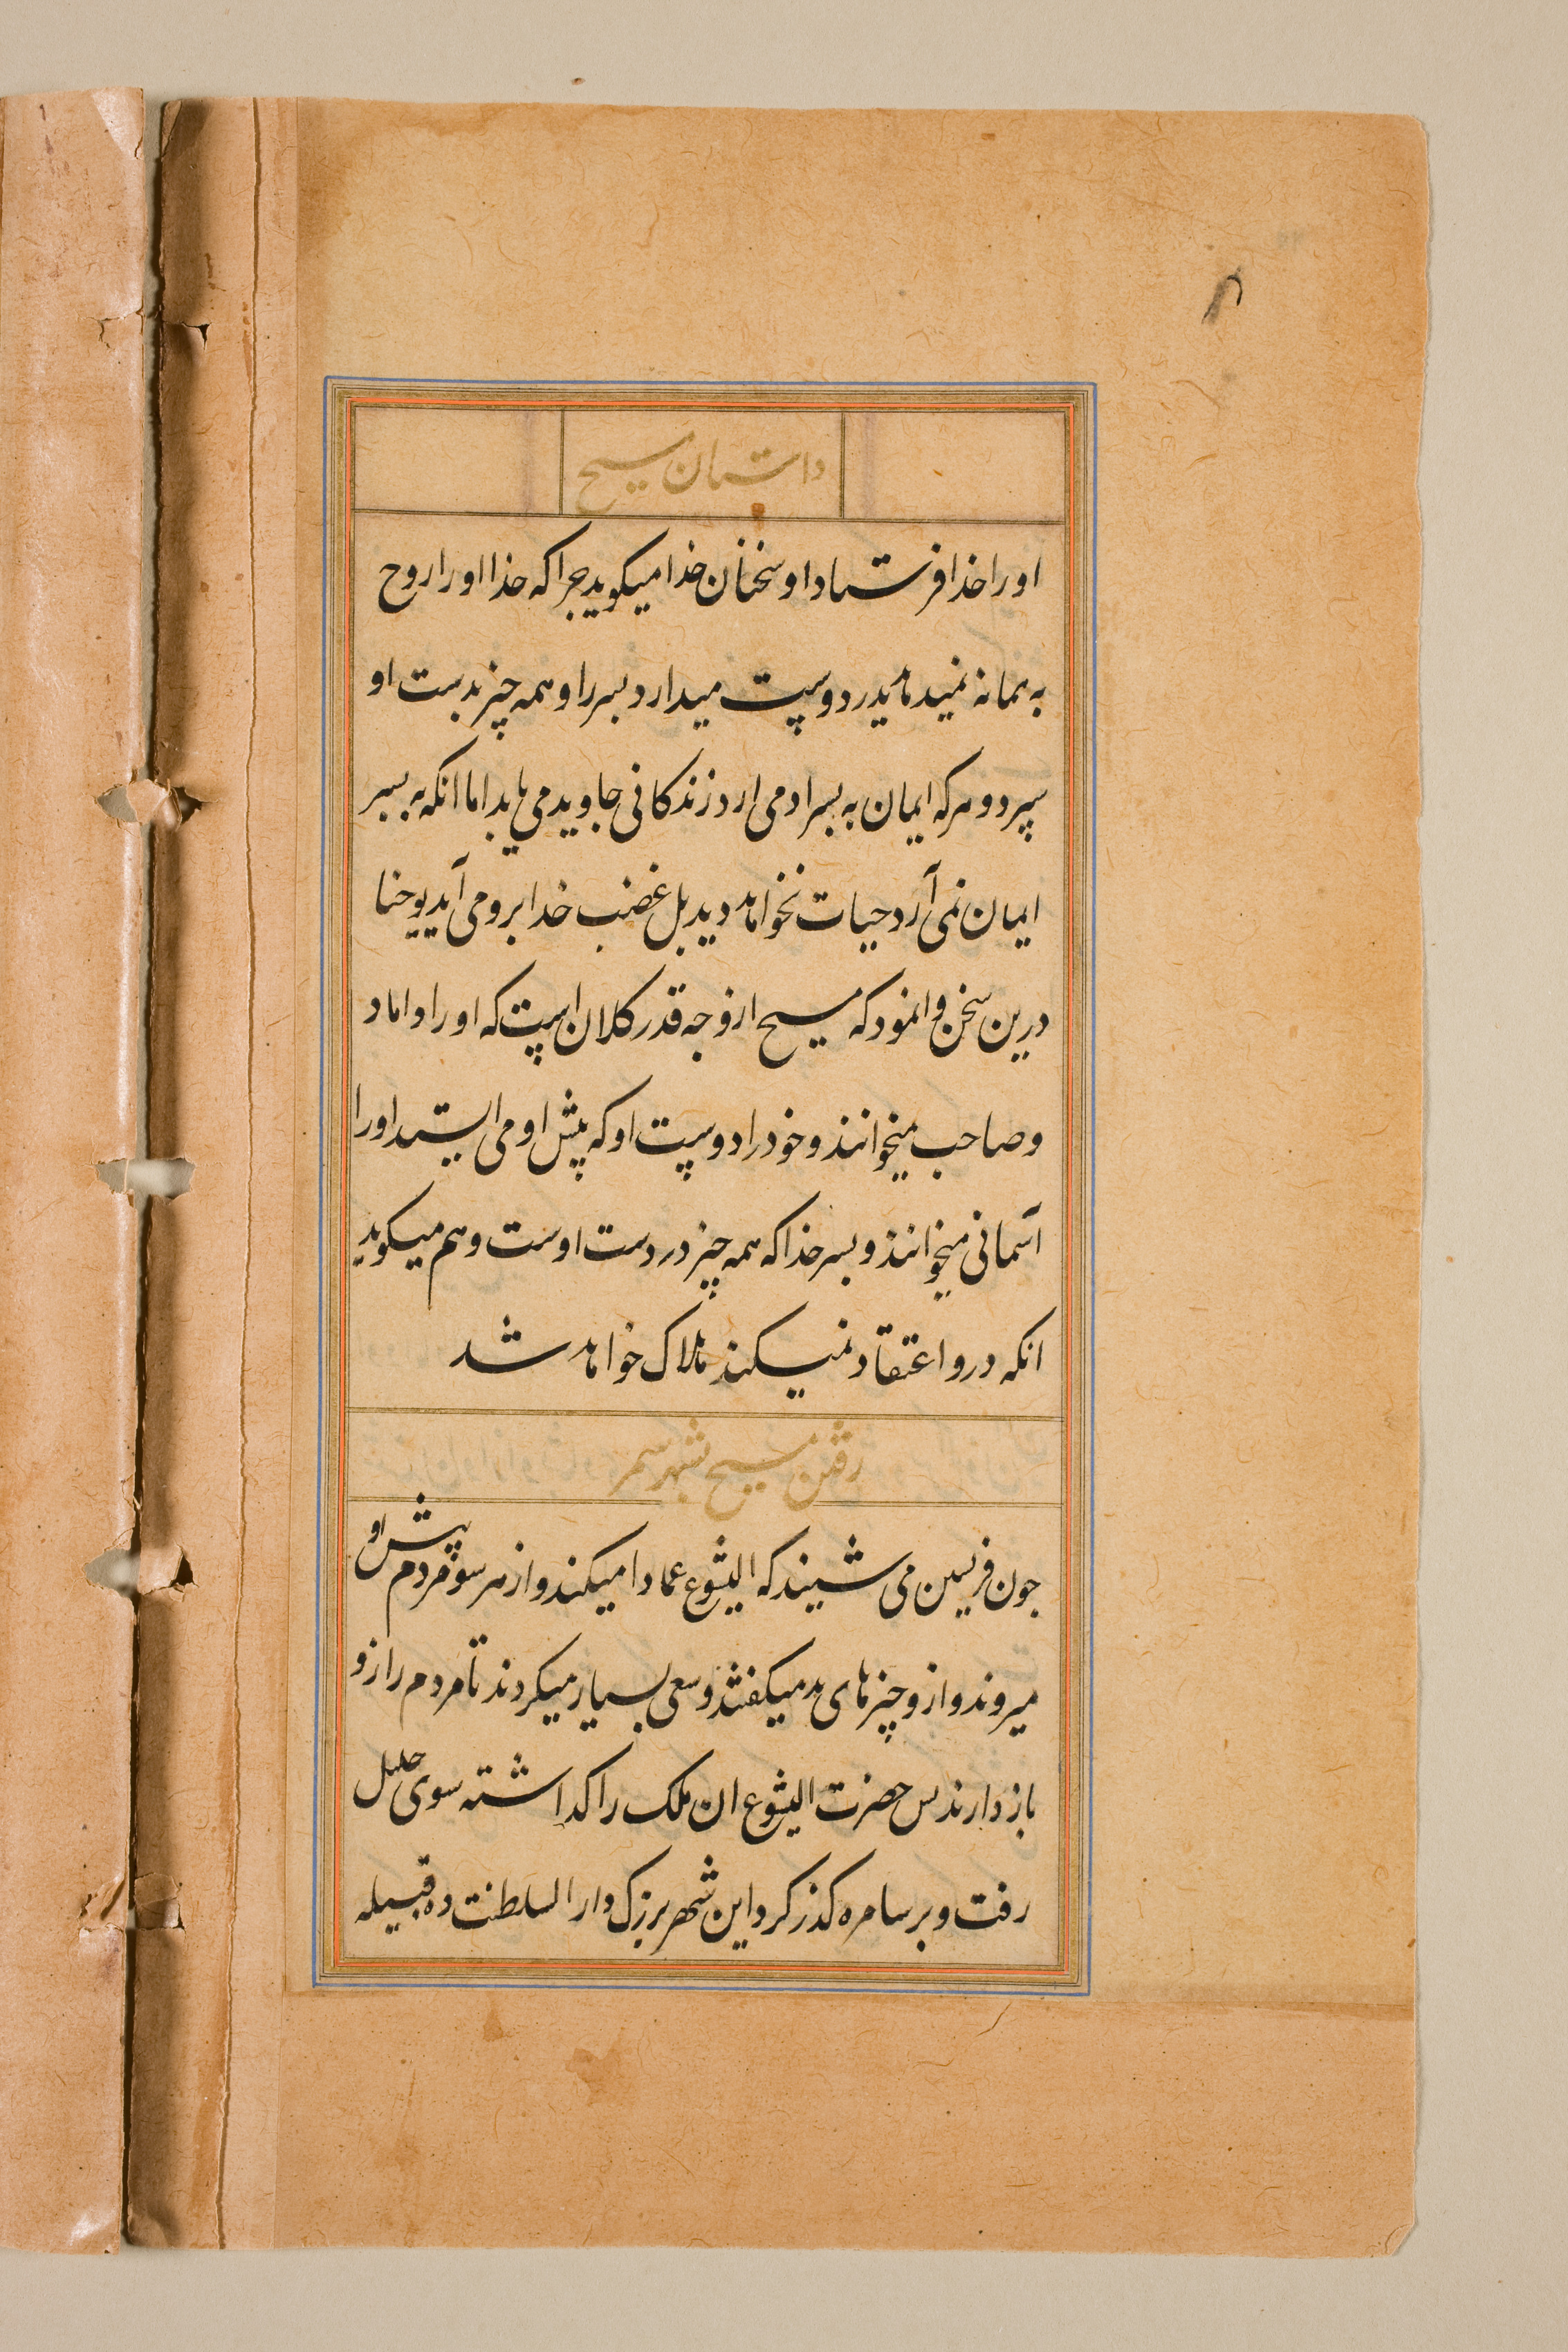 داستان مسیح
اورا خدا فرستاد او سخنان خدا میکوید جرا که خذا اورا روح
به سمانه نمیدهد پدر دوست میدارد پسر را و همه چیز بدست او
سپرد و هرکه ایمان به پسر او می ارد زندکانی جاوید می یابد اما انکه به پسر
ایمان نمی آرد حیات نخواهد دید بل غضب خدا برو می آید یوحنا
درین سخن وانمود که مسیح ازو چه قدر کلان است که اورا داماد
و صاحب میخوانند و خود را دوست او که پیش او می ایستد اورا
آسمانی میخوانند و پسر خدا که همه چیز در دست اوست و هم میکوید
انکه درو اعتقاد نمیکند هلاک خواهد شد
رفتن مسیح بشهر سمر
جون فریسین می شنیند که ایشوع عمادا میکند و از هر سو مردم پیش او
میروند و ازو چیزهای بد میکفتند و سعی بسیار میکردند تا مردم را ازو
باز دارند پس حضرت ایشوع ان ملک را کداشته سوی جلیل
رفت و بر سامره کذر کرد این شهر بزرک دار السلطنت ده قبیله